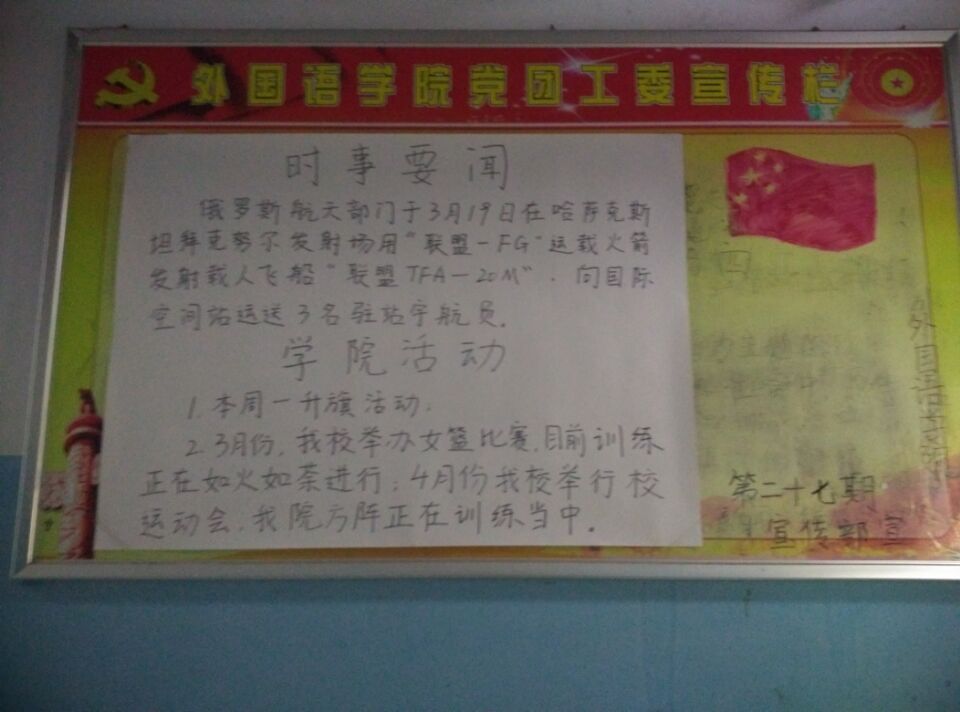 外国语学院党团工委宣传栏
时事要闻
俄罗斯航天部门于3月19日在哈萨克斯
坦拜克努尔发射场用“联盟-FG”运载火箭
发射载人飞船“联盟TFA-20M”.向国际
空间站运送3名驻站宇航员.
学院活动
1.本周一升旗活动.
2.3月份,我校举办女篮比赛,目前训练
正在如火如荼进行;4月份我校举行校
运动会,我院方阵正在训练当中.
第二十七期
宣传部宣
四
外国语